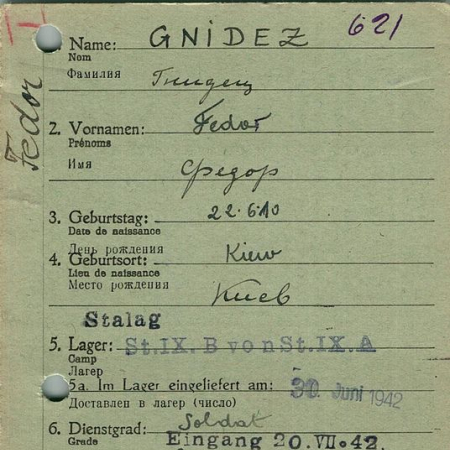 621
Fedor
1. Name: GNIDEZ
Nom
Фамилия Гнидец
2. Vornamen: Fedor
Prénoms
Имя Федор
3. Geburtstag: 22.6.10
Date de naissance
День рождения
4. Geburtsort: Kiew
Lieu de naissance
Место рождения Киев
Stalag
5. Lager: St.IX.B von St.IX.A
Camp
Лагерь
5a. Im Lager eingeliefert am: 30. Juni 1942
Доставлен в лагерь (число)
6. Dienstgrad: Soldat
Grade Eingang 20.VII.42.